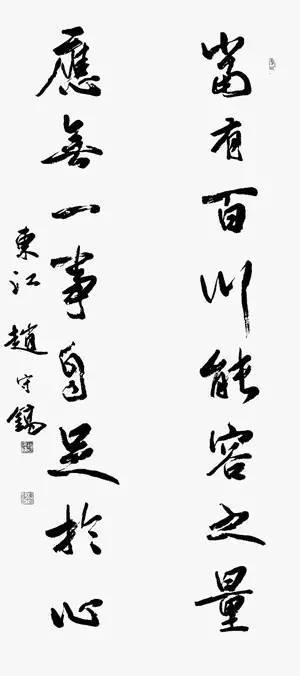 當有百川能容之量
應無一事自足於心
東江趙守鎬